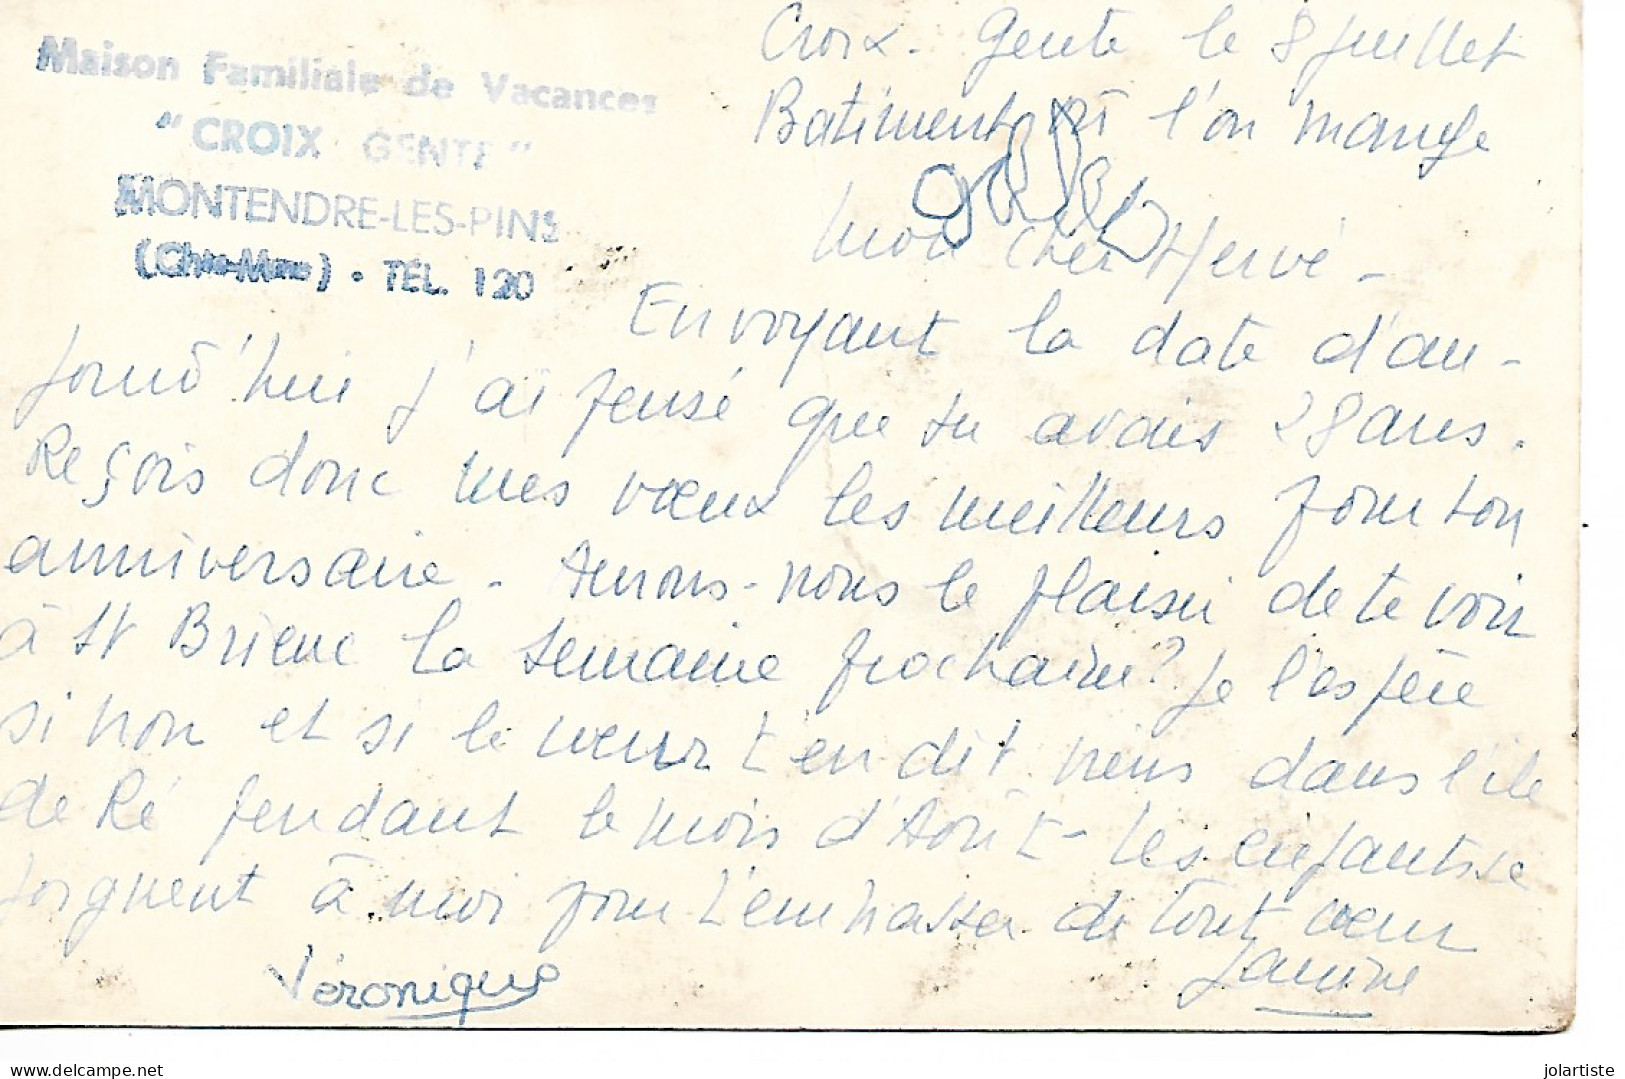 Maison Familiale de Vacances
"CROIX GENTE"
MONTENDRE-LES-PINS
(Chte-Mme) • TEL. 120
Croix-Gente le 8 juillet
Batiment où l'on mange
Mon cher Hervé -
En voyant la date d'au-
jourd'hui j'ai pensé que tu avais 28 ans.
Reçois donc mes vœux les meilleurs pour ton
anniversaire - Aurons-nous le plaisir de te voir
à St Brieuc la semaine prochaine? Je l'espère
si non et si le cœur t'en dit viens dans l'île
de Ré pendant le mois d'Août - les enfants se
joignent à moi pour t'embrasser de tout cœur
Janine
Véronique
delcampe.net
jolartiste